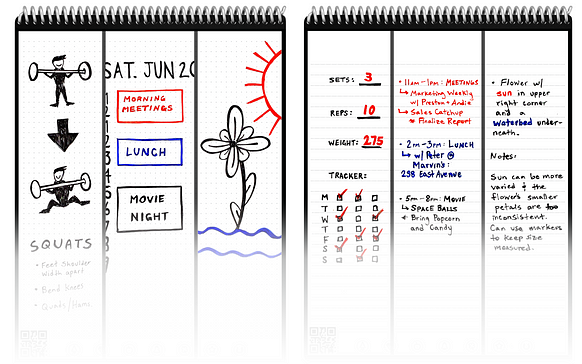 SAT. JUN 20
MORNING
MEETINGS
LUNCH
MOVIE
NIGHT
SQUATS
• Feet Shoulder
Width apart
• Bend Knees
• Quads/Hams
SETS: 3
REPS: 10
WEIGHT: 275
TRACKER:
M
T
W
T
F
S
S
• 11am-1pm: MEETINGS
↳ Marketing Weekly
w/ Preston + Andie
↳ Sales Catchup
* Finalize Report
• 2pm-3pm: LUNCH
↳ w/ Peter @
Marvin's:
258 East Avenue
• 5pm-8pm: MOVIE
↳ SPACE BALLS
* Bring Popcorn
and Candy
• Flower w/
sun in upper
right corner
and a
waterbed under-
neath.
Notes:
Sun can be more
varied & the
flower's smaller
petals are too
inconsistent.
Can use markers
to keep size
measured.